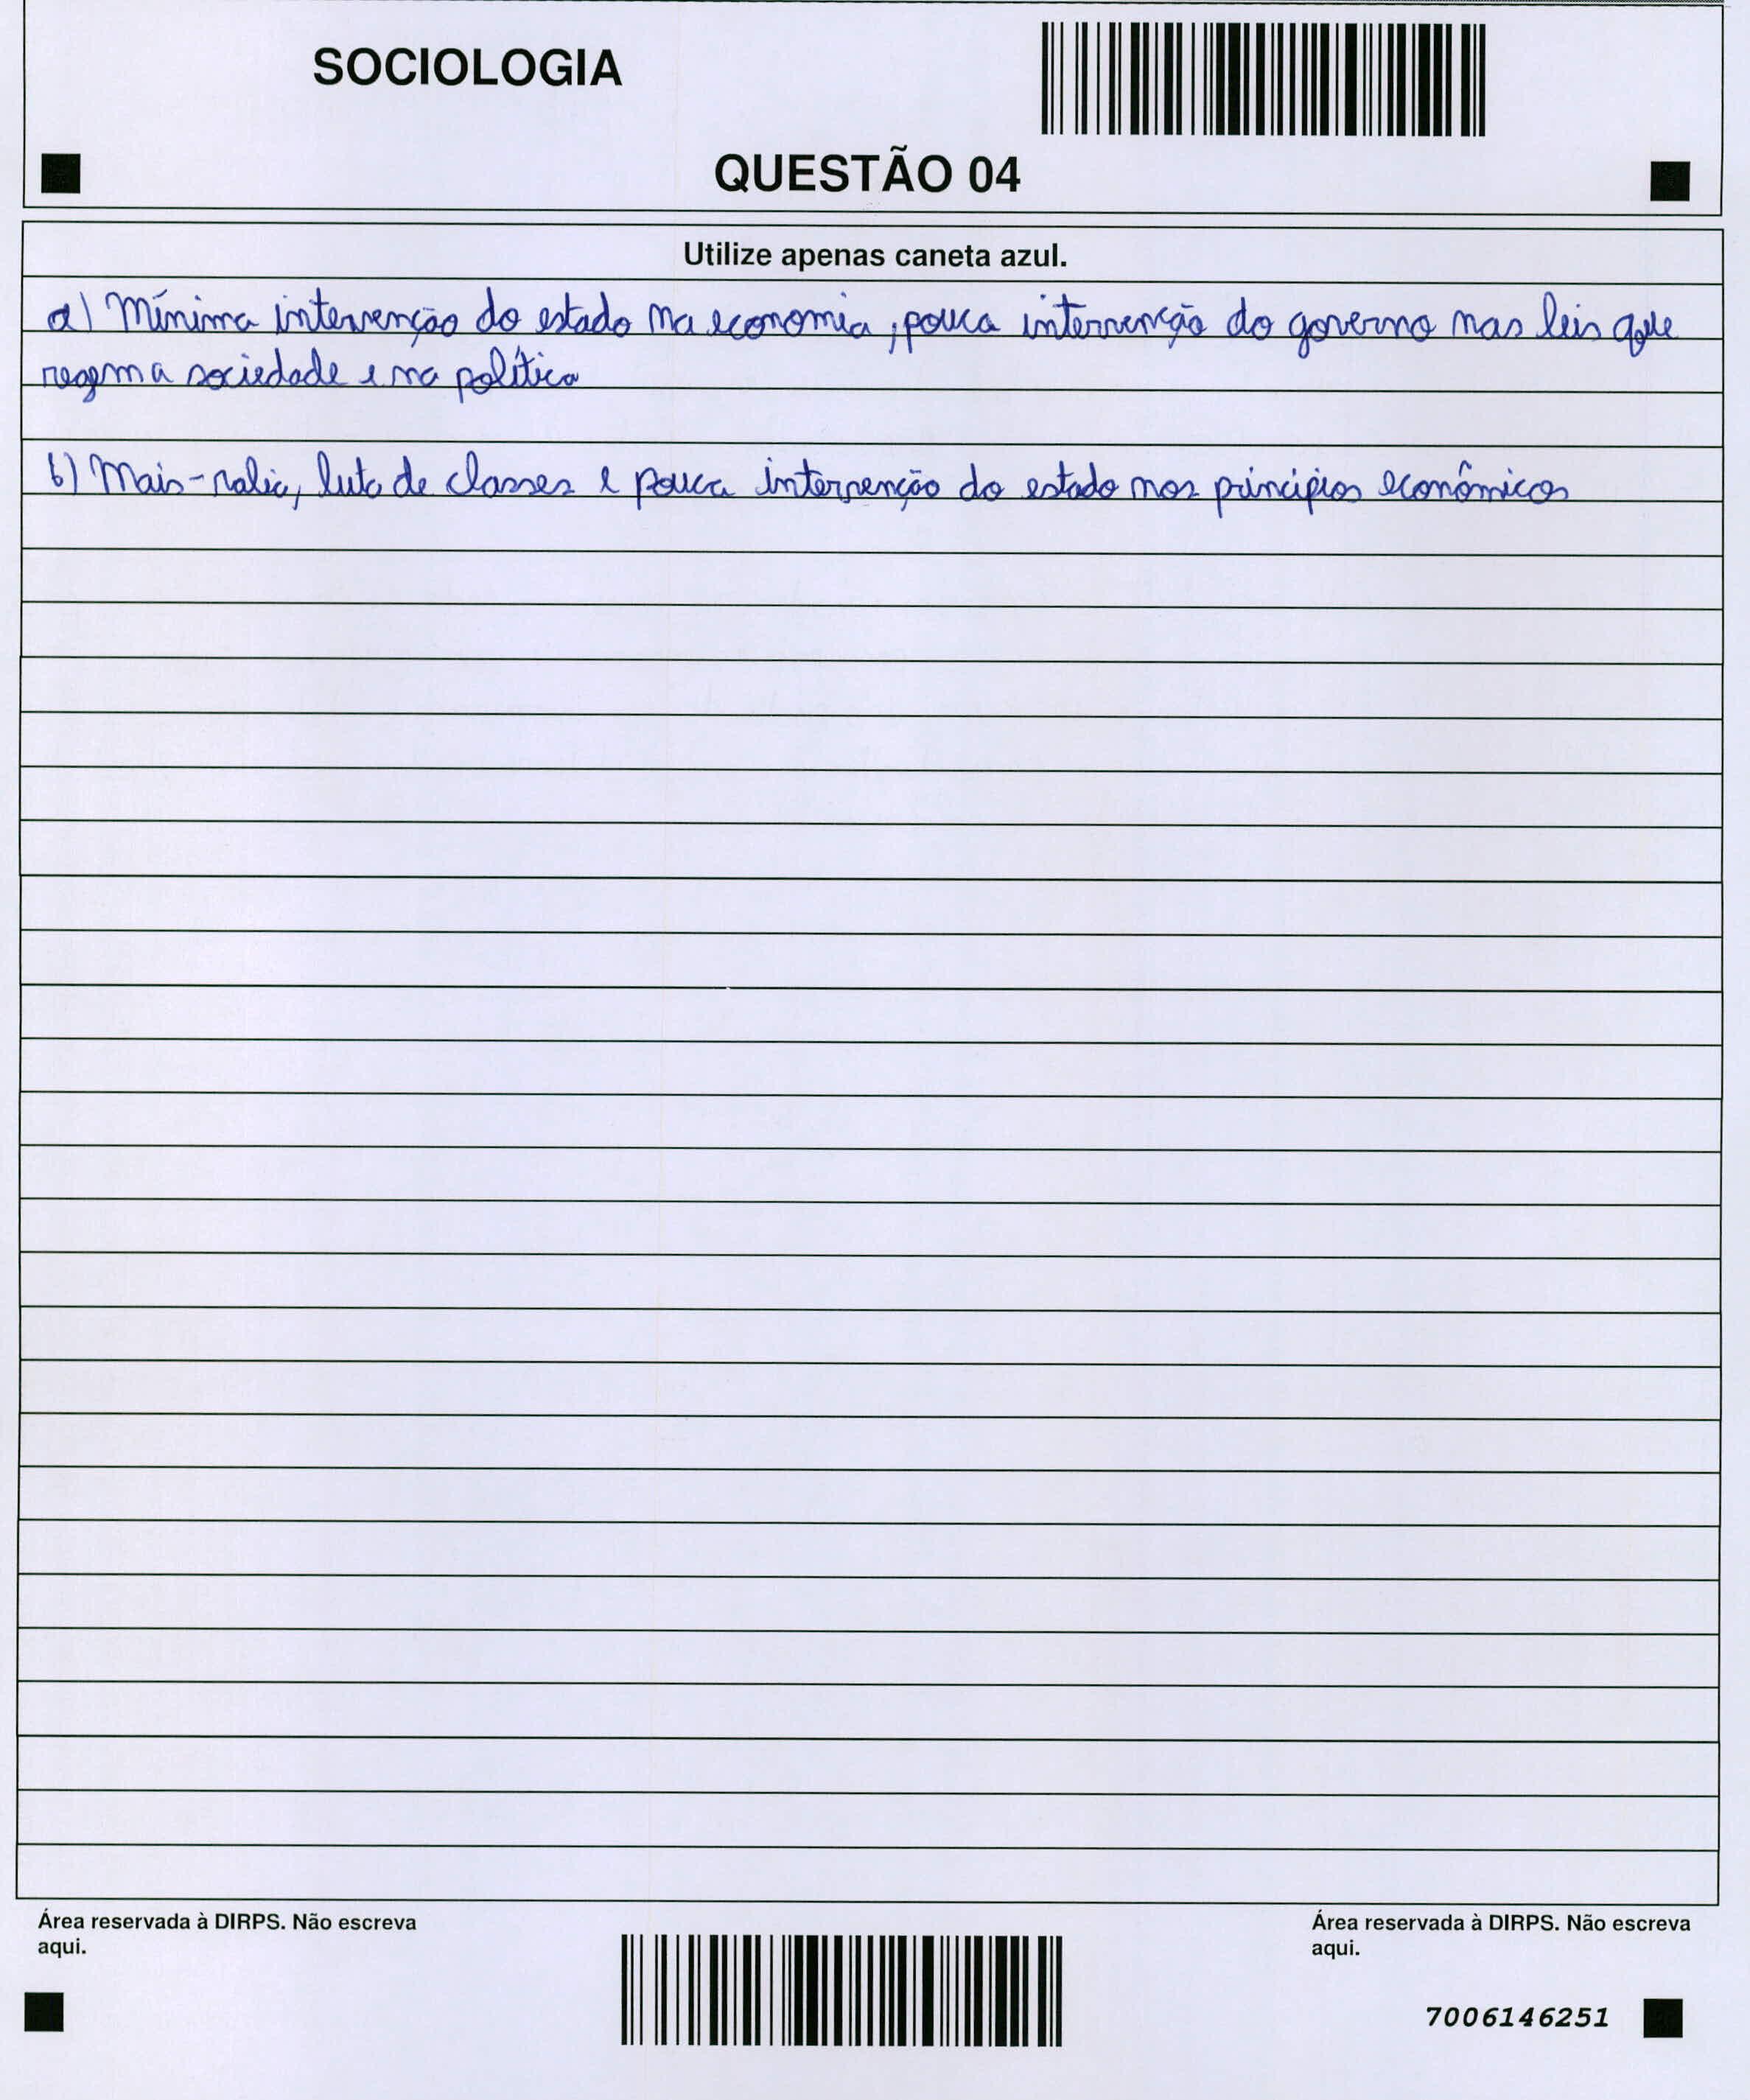 SOCIOLOGIA
QUESTÃO 04
Utilize apenas caneta azul.
a) Mínima intervenção do estado na economia, pouca intervenção do governo nas leis que
regem a sociedade e na política
b) Mais-valia, luta de classes e pouca intervenção do estado nos princípios econômicos
Área reservada à DIRPS. Não escreva
aqui.
Área reservada à DIRPS. Não escreva
aqui.
7006146251